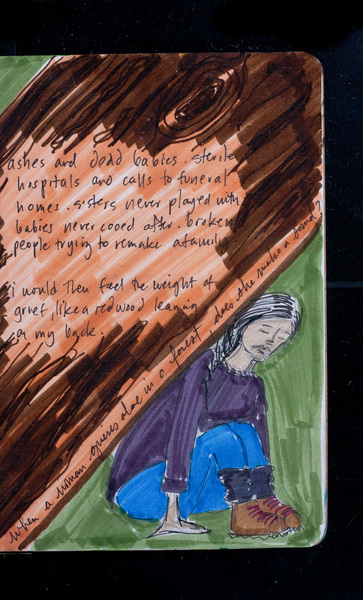 ashes and dead babies. sterile
hospitals and calls to funeral
homes. sisters never played with
babies never cooed after. broken
people trying to remake a family
i would then feel the weight of
grief, like a redwood leaning
on my back.
when a woman grieves alone in a forest does she make a sound?